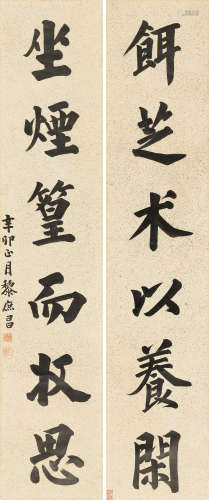 餌芝术以養閑
坐煙篁而牧思
辛卯正月黎庶昌